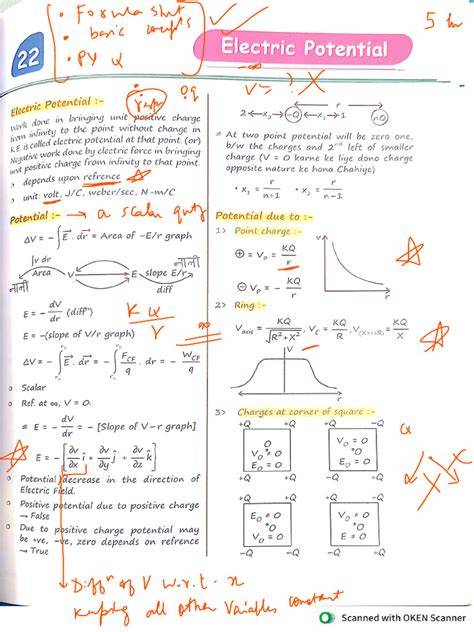 • Formula Shts
• basic concepts
• PY Q
5 hr
22
Electric Potential
Electric Potential :-
Work done in bringing unit positive charge
from infinity to the point without change in
K.E. is called electric potential at that point. (or)
Negative work done by electric force in bringing
unit positive charge from infinity to that point.
depends upon refrence
unit: volt, J/C, weber/sec, N-m/C
Potential :- → a scalar qnty
ΔV = -∫E⃗. dr⃗ = Area of -E/r graph
∫v dr
Area
V
E
slope E/r
diff
नानी
नानी
E = -dV/dr (diffⁿ)
E = -(slope of V/r graph)
K Q
r
ΔV = -∫E⃗. dr⃗ = -∫F_CF/q . dr = -W_CF/q
Scalar
Ref. at ∞, V = 0.
E = -dV/dr = - [Slope of V-r graph]
E = -[∂v/∂x î + ∂v/∂y ĵ + ∂v/∂z k̂]
Potential decrease in the direction of
Electric Field.
Positive potential due to positive charge
→ False
Due to positive charge potential may
be +ve, -ve, zero depends on refrence
→ True
r
2 x₂ -Q x₁ 1 nQ
At two point potential will be zero one.
b/w the charges and 2ⁿᵈ left of smaller
charge (V = 0 karne ke liye dono charge
opposite nature ke hona Chahiye)
• x₁ = r/n+1 • x₂ = r/n-1
Potential due to :-
1> Point charge :-
⊕ = V_P = KQ/r
⊖ = V_P = -KQ/r
V
r
2> Ring :-
V_axis = KQ/√R²+X², V_C = KQ/R, V_(X>>>R) = KQ/X
V
r
3> Charges at corner of square :-
+Q +Q +Q -Q
V₀ = 0
V₀ = 0
E₀ = 0
E₀ = 0
V₀ = 0
Diffⁿ of V w.r.t. x
keeping all other Variables constant
Scanned with OKEN Scanner